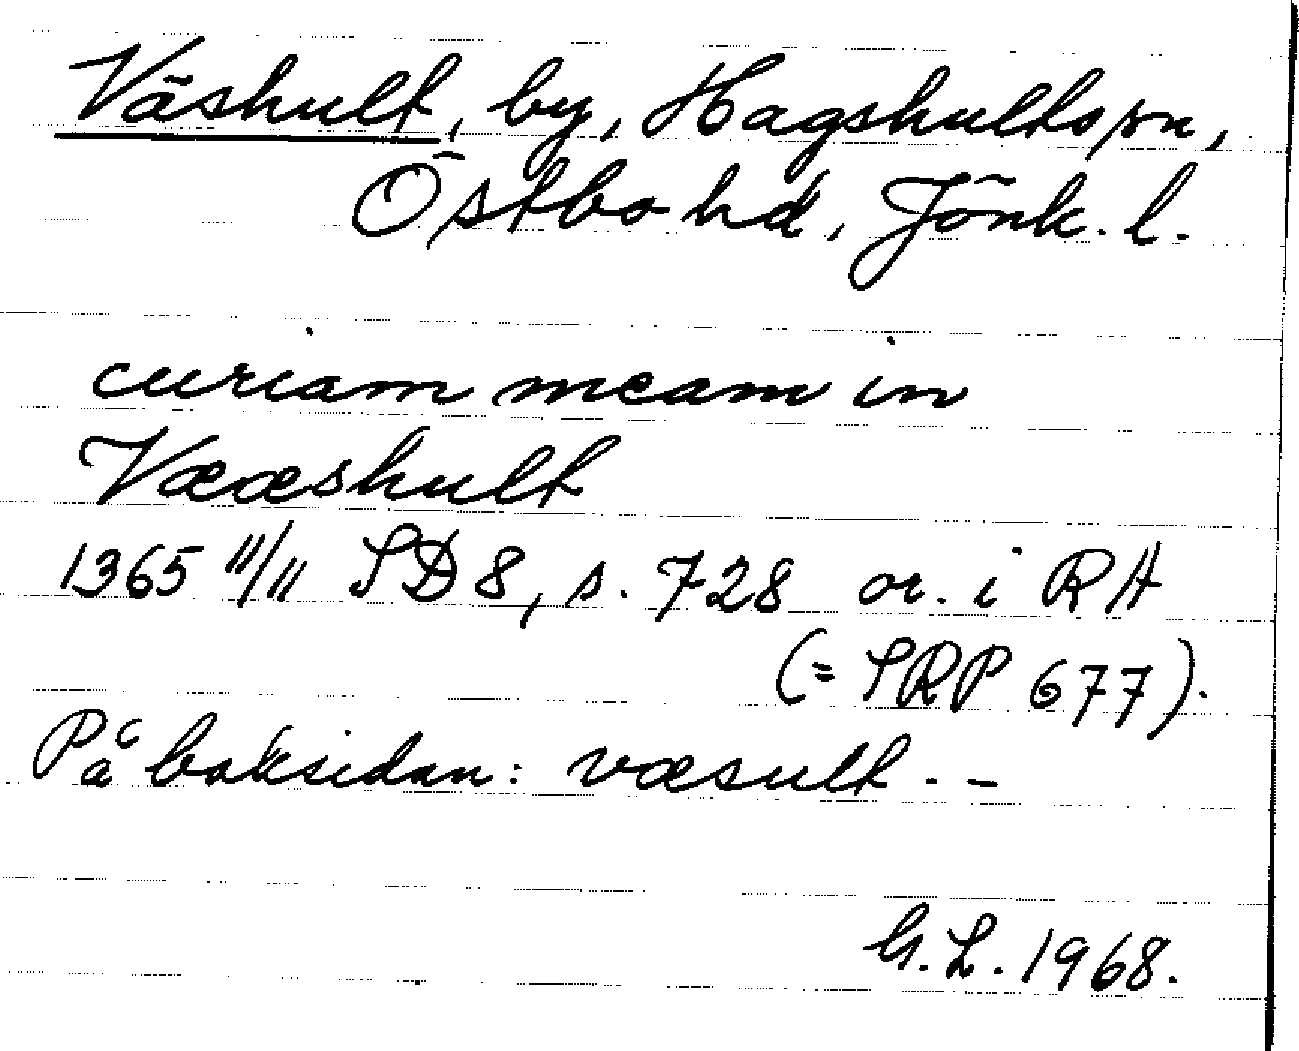 Väshult, by, Hagshults sn,
Östbo hd, Jönk. l.
curiam meam in
Vææshult
1365 11/11 SD 8, s. 728 or. i RA
(= SRP 677).
På baksidan: væsult. –
G. L. 1968.